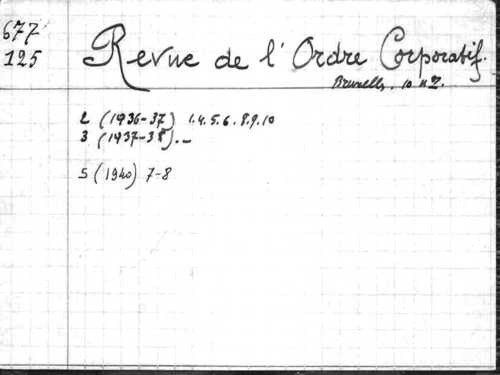 677
125
Revue de l'Ordre Corporatif.
Bruxelles. 10 nos
2 (1936-37) 1.4.5.6.8.9.10
3 (1937-38).-
5 (1940) 7-8